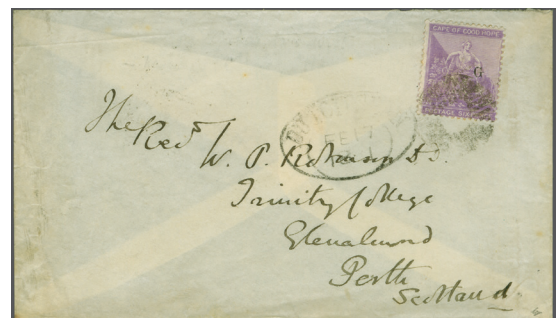 CAPE OF GOOD HOPE
G
The Revd W. P. Robinson D.D.
Trinity College
Glenalmond
Perth
Scotland
FE 17